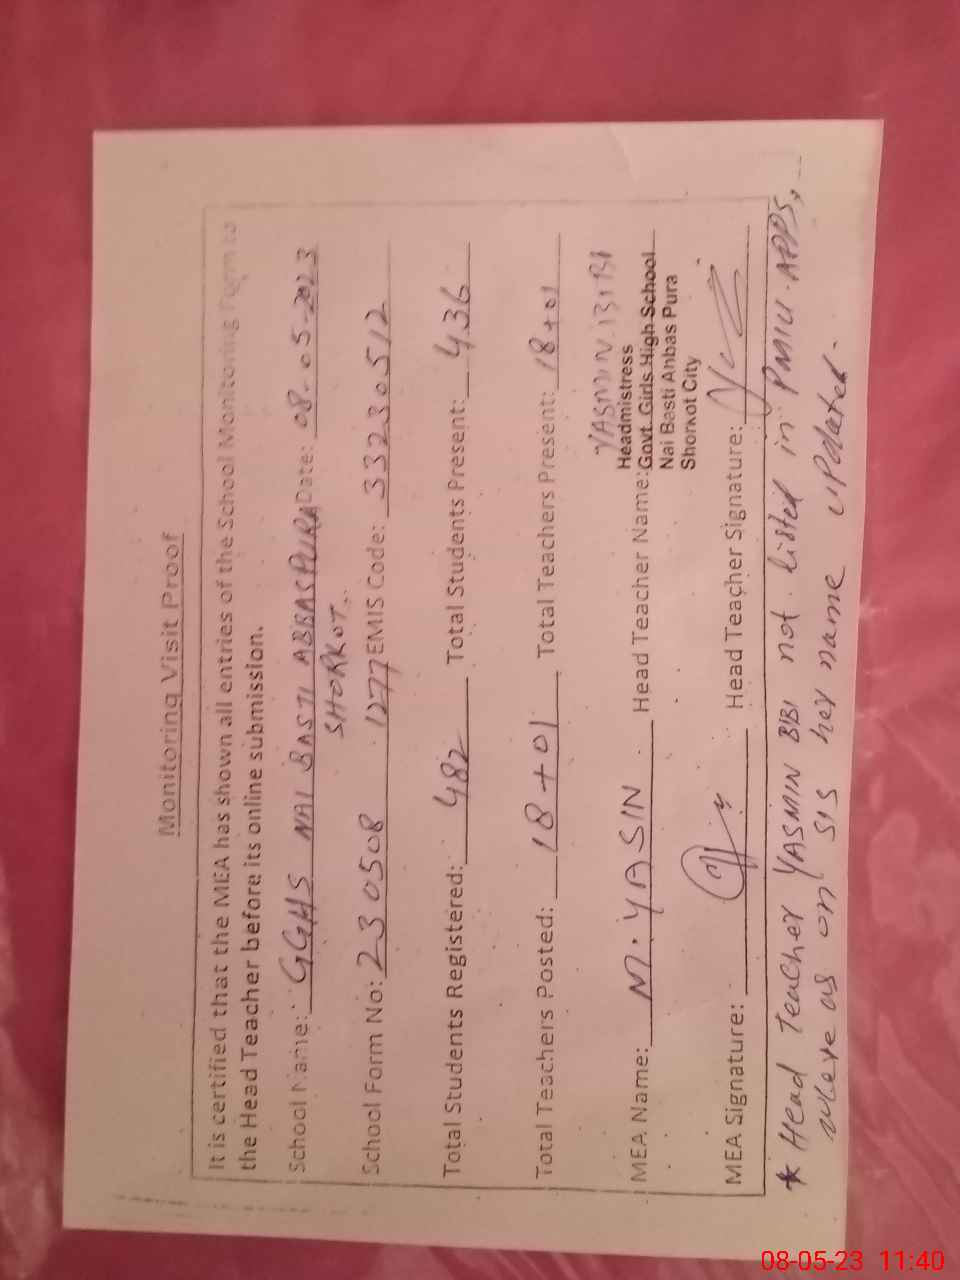 Monitoring Visit Proof
It is certified that the MEA has shown all entries of the School Monitoring Form to
the Head Teacher before its online submission.
School Name: GGHS NAI BASTI ABBASPURA Date: 08-05-2023
SHORKOT.
School Form No: 230508 1277 EMIS Code: 33230512
Total Students Registered: 482 Total Students Present: 436
Total Teachers Posted: 18+01 Total Teachers Present: 18+01
YASMIN BIBI
Headmistress
MEA Name: M. YASIN Head Teacher Name: Govt. Girls High School
Nai Basti Anbas Pura
Shorkot City
MEA Signature: Head Teacher Signature:
* Head Teacher YASMIN BIBI not listed in PMIU-APPS,
where as on SIS her name updated.
08-05-23 11:40